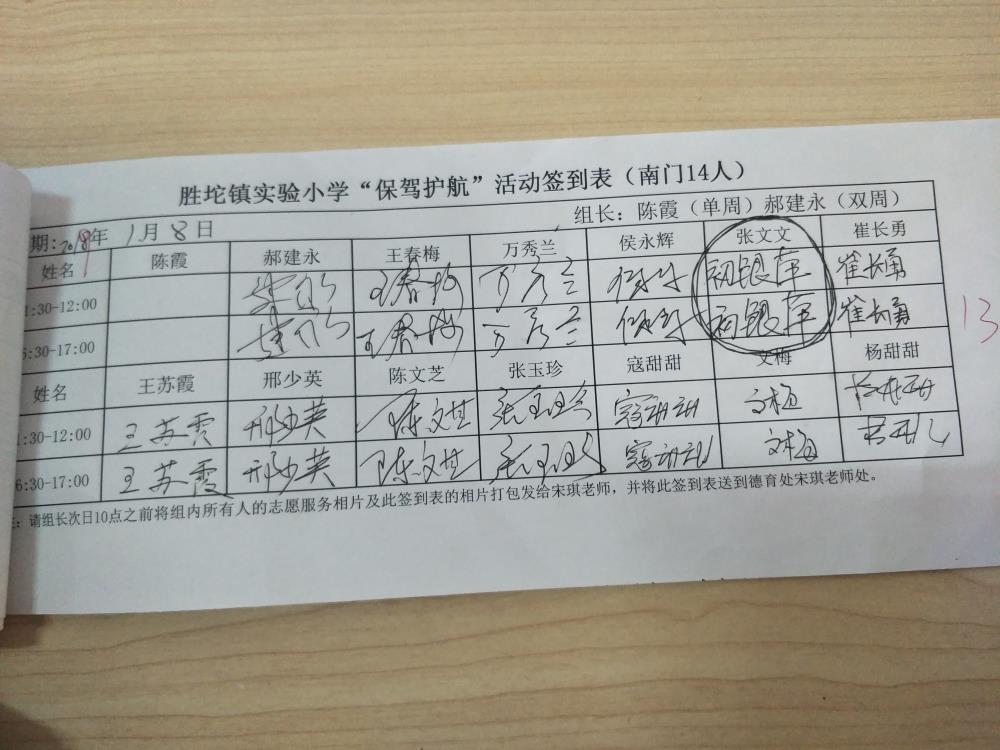 胜坨镇实验小学“保驾护航”活动签到表（南门14人）
期：2018年1月8日 组长：陈霞（单周）郝建永（双周）
姓名 陈霞 郝建永 王春梅 万秀兰 侯永辉 张文文 崔长勇
1:30-12:00 建永 王春梅 万秀兰 崔长勇
6:30-17:00 建永 王春梅 万秀兰 崔长勇
13
姓名 王苏霞 邢少英 陈文芝 张玉珍 寇甜甜 文梅 杨甜甜
1:30-12:00 王苏霞 邢少英 陈文芝 张玉珍 寇甜甜 文梅
6:30-17:00 王苏霞 邢少英 陈文芝 张玉珍 寇甜甜 文梅
：请组长次日10点之前将组内所有人的志愿服务相片及此签到表的相片打包发给宋琪老师，并将此签到表送到德育处宋琪老师处。